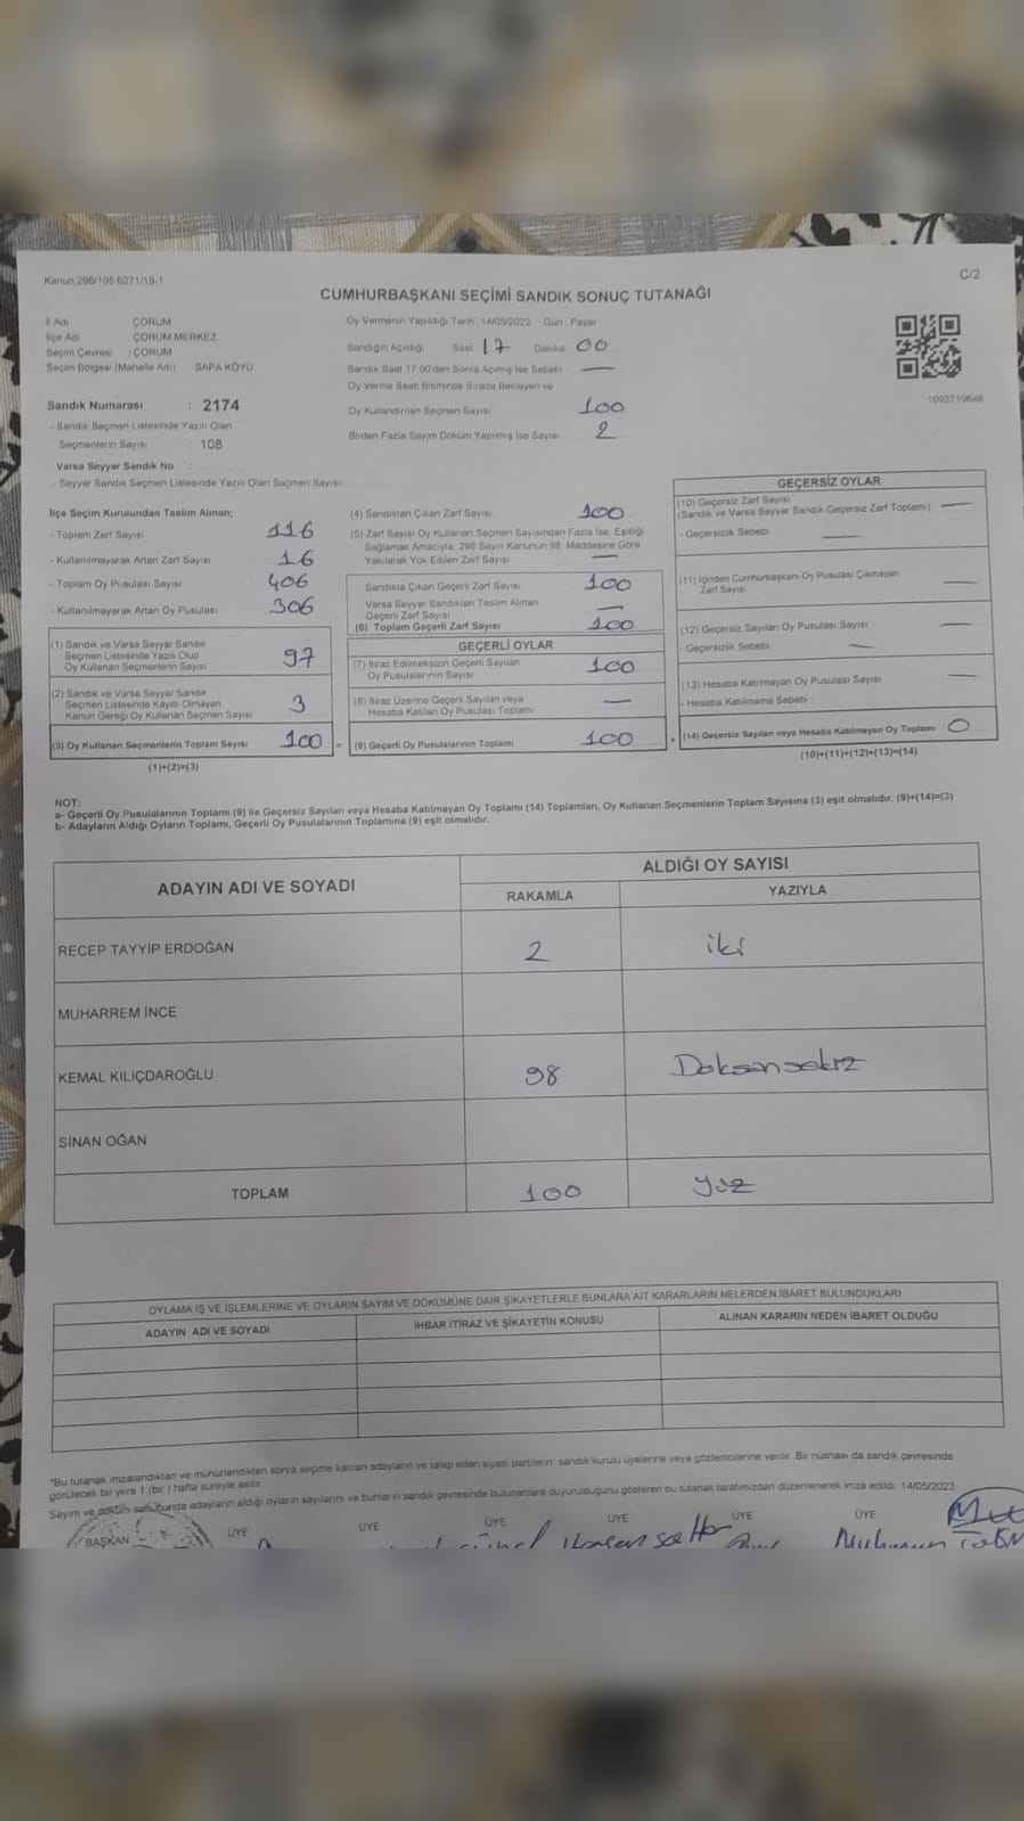 Kanun:298/105 6271/18-1
C/2
CUMHURBAŞKANI SEÇİMİ SANDIK SONUÇ TUTANAĞI
İl Adı ÇORUM
İlçe Adı ÇORUM MERKEZ
Seçim Çevresi : ÇORUM
Seçim Bölgesi (Mahalle Adı) SAPA KÖYÜ
Oy Vermenin Yapıldığı Tarih: 14/05/2023 - Gün : Pazar
Sandığın Açıldığı Saat 17 Dakika 00
Sandık Saat 17.00'den Sonra Açılmış İse Sebebi —
Oy Verme Saati Bitiminde Sırada Bekleyen ve
Oy Kullandırılan Seçmen Sayısı 100
Birden Fazla Sayım Döküm Yapılmış İse Sayısı 2
Sandık Numarası : 2174
- Sandık Seçmen Listesinde Yazılı Olan
Seçmenlerin Sayısı 108
Varsa Seyyar Sandık No
- Seyyar Sandık Seçmen Listesinde Yazılı Olan Seçmen Sayısı
İlçe Seçim Kurulundan Teslim Alınan;
- Toplam Zarf Sayısı 116
- Kullanılmayarak Artan Zarf Sayısı 16
- Toplam Oy Pusulası Sayısı 406
- Kullanılmayarak Artan Oy Pusulası 306
(1) Sandık ve Varsa Seyyar Sandık
Seçmen Listesinde Yazılı Olup
Oy Kullanan Seçmenlerin Sayısı 97
(2) Sandık ve Varsa Seyyar Sandık
Seçmen Listesinde Kayıtlı Olmayan
Kanun Gereği Oy Kullanan Seçmen Sayısı 3
(3) Oy Kullanan Seçmenlerin Toplam Sayısı 100
(1)+(2)=(3)
(4) Sandıktan Çıkan Zarf Sayısı 100
(5) Zarf Sayısı Oy Kullanan Seçmen Sayısından Fazla İse, Eşitliği
Sağlamak Amacıyla, 298 Sayılı Kanunun 98. Maddesine Göre
Yakılarak Yok Edilen Zarf Sayısı —
Sandıkta Çıkan Geçerli Zarf Sayısı 100
Varsa Seyyar Sandıktan Teslim Alınan
Geçerli Zarf Sayısı —
(6) Toplam Geçerli Zarf Sayısı 100
GEÇERLİ OYLAR
(7) İtiraz Edilmeksizin Geçerli Sayılan
Oy Pusulalarının Sayısı 100
(8) İtiraz Üzerine Geçerli Sayılan veya
Hesaba Katılan Oy Pusulası Toplamı —
(9) Geçerli Oy Pusulalarının Toplamı 100
GEÇERSİZ OYLAR
(10) Geçersiz Zarf Sayısı
(Sandık ve Varsa Seyyar Sandık Geçersiz Zarf Toplamı) —
- Geçersizlik Sebebi —
(11) İçinden Cumhurbaşkanı Oy Pusulası Çıkmayan
Zarf Sayısı —
(12) Geçersiz Sayılan Oy Pusulası Sayısı —
- Geçersizlik Sebebi —
(13) Hesaba Katılmayan Oy Pusulası Sayısı —
- Hesaba Katılmama Sebebi
(14) Geçersiz Sayılan veya Hesaba Katılmayan Oy Toplamı 0
(10)+(11)+(12)+(13)=(14)
NOT:
a- Geçerli Oy Pusulalarının Toplamı (9) ile Geçersiz Sayılan veya Hesaba Katılmayan Oy Toplamı (14) Toplamları, Oy Kullanan Seçmenlerin Toplam Sayısına (3) eşit olmalıdır. (9)+(14)=(3)
b- Adayların Aldığı Oyların Toplamı, Geçerli Oy Pusulalarının Toplamına (9) eşit olmalıdır.
ADAYIN ADI VE SOYADI
ALDIĞI OY SAYISI
RAKAMLA YAZIYLA
RECEP TAYYİP ERDOĞAN 2 iki
MUHARREM İNCE
KEMAL KILIÇDAROĞLU 98 Doksansekiz
SİNAN OĞAN
TOPLAM 100 yüz
OYLAMA İŞ VE İŞLEMLERİNE VE OYLARIN SAYIM VE DÖKÜMÜNE DAİR ŞİKAYETLERLE BUNLARA AİT KARARLARIN NELERDEN İBARET BULUNDUKLARI
ADAYIN ADI VE SOYADI
İHBAR İTİRAZ VE ŞİKAYETİN KONUSU
ALINAN KARARIN NEDEN İBARET OLDUĞU
*Bu tutanak imzalandıktan ve mühürlendikten sonra seçime katılan adayların ve talep eden siyasi partilerin sandık kurulu üyelerine veya gözlemcilerine verilir. Bir nüshası da sandık çevresinde
görülecek bir yere 1 (bir) hafta süreyle asılır.
Sayım ve döküm sonucunda adayların aldığı oyların sayılarını ve bunların sandık çevresinde bulunanlara duyurulduğunu gösteren bu tutanak tarafımızdan düzenlenerek imza edildi. 14/05/2023
BAŞKAN ÜYE ÜYE ÜYE ÜYE ÜYE ÜYE